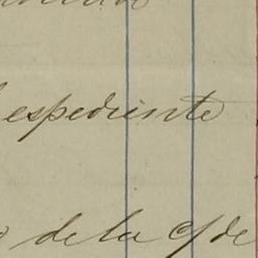 espediente
de la C/ de